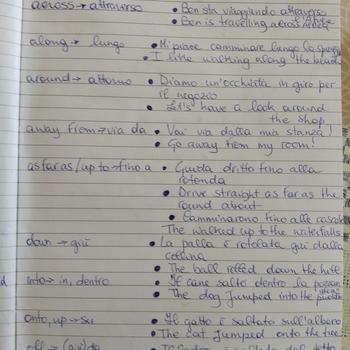 across → attraverso • Ben sta viaggiando attraverso
• Ben is travelling across
along → lungo • Mi piace camminare lungo la
• I like walking along the beach
around → attorno • Diamo un'occhiata in giro per
il negozio
• Let's have a look around
the shop!
away from → via da • Vai via dalla mia stanza!
• Go away from my room!
as far as/up to → fino a • Guida dritto fino alla
rotonda
• Drive straight as far as the
round about
• Camminarono fino alle
The walked up to the waterfalls
down → giù • La palla è rotolata giù dalla
collina
• The ball rolled down the hill
d into → in, dentro • Il cane saltò dentro la
• The dog jumped into the
onto, up → su • Il gatto è saltato sull'albero
• The cat jumped onto the tree
off → (giù) da